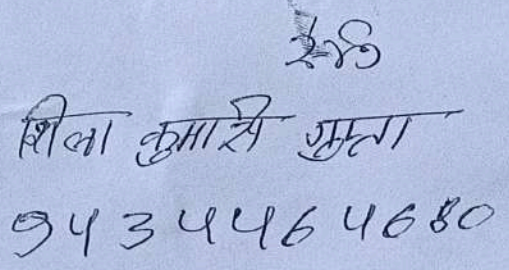 शिला कुमारी गुप्ता
94344464680